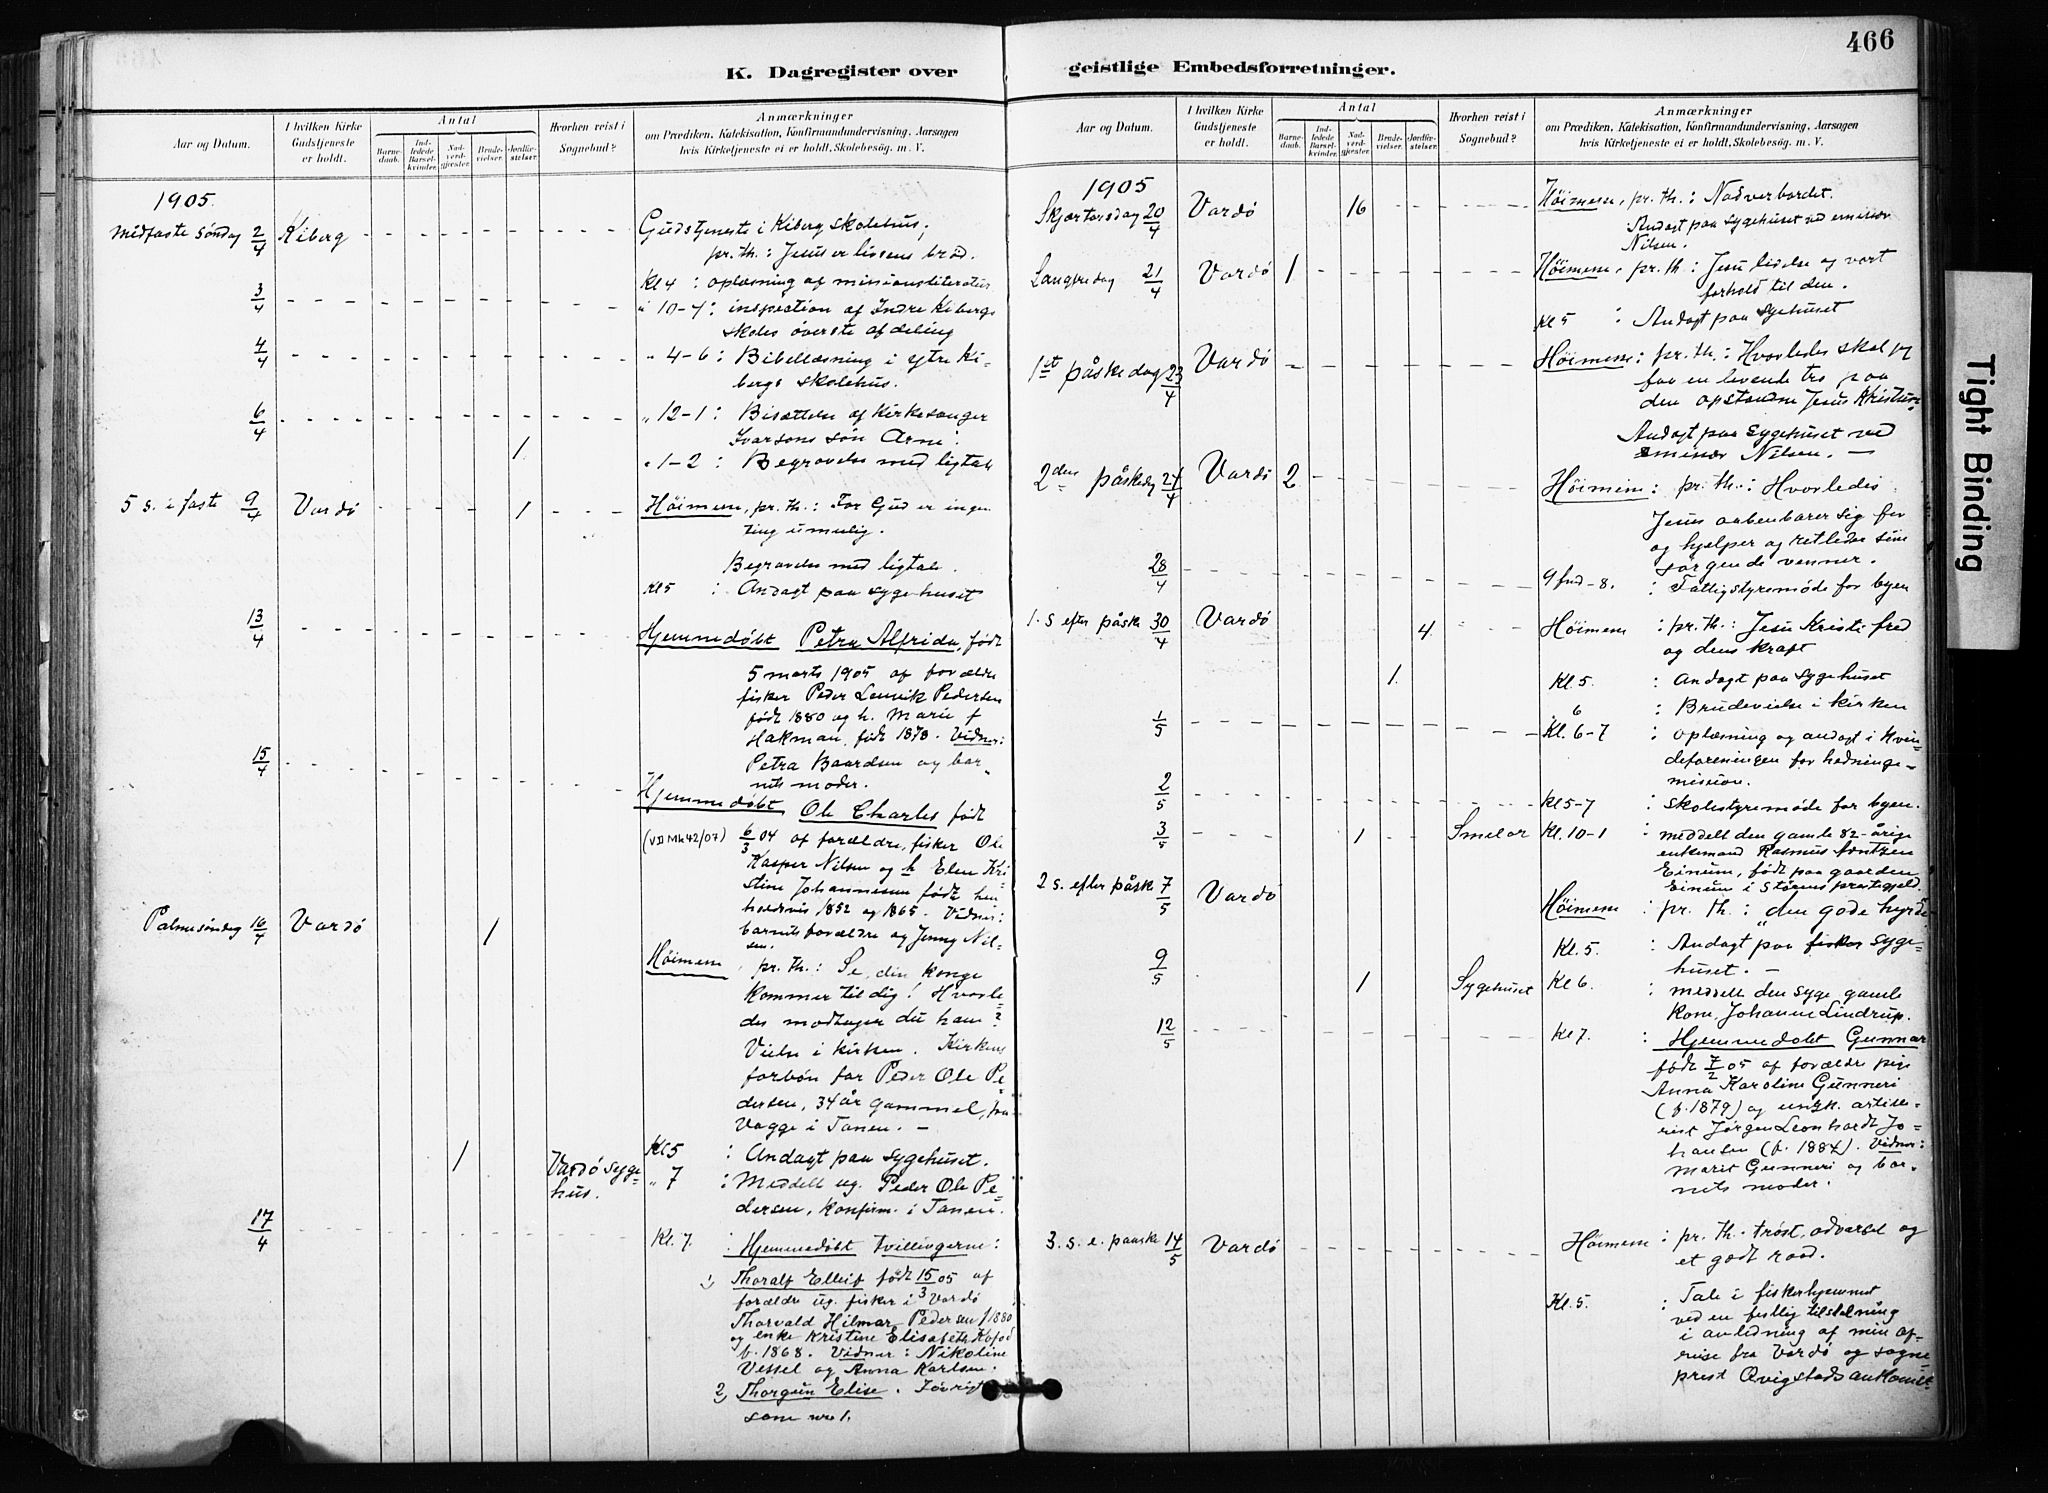 466
K. Dagregister over
geistlige Embedsforretninger.
Aar og Datum.
I hvilken Kirke
Gudstjeneste
er holdt.
Antal
Barne-
daab.
Ind-
ledede
Barsel-
kvinder.
Nad-
verd-
gjester.
Brude-
vielser.
Jordfæ-
stelser.
Hvorhen reist i
Sognebud?
Anmærkninger
om Prædiken, Katekisation, Konfirmandundervisning, Aarsagen
hvis Kirketjeneste ei er holdt, Skolebesøg. m. V.
1905.
Midfaste søndag 2/4 Kiberg
Gudstjeneste i Kiberg skolehus;
pr. th.: Jesus er livsens brød.
Kl 4 : oplæsning af missionsliteratur
3/4
" 10-1 : inspection af Indre Kibergs
skoles øverste afdeling
4/4
" 4-6 : Bibellæsning i ytre Ki-
bergs skolehus.
6/4
" 12-1 : Bisættelse af Kirkesanger
Ivarsons søn Arne.
1
" 1-2 : Begravelse med ligtale
5 s. i faste 9/4 Vardø 1
Høimesse, pr. th.: For Gud er ingen
ting umulig.
Begravelse med ligtale.
Kl 5 : Andagt paa sygehuset
13/4
Hjemmedøbt Petra Alfrida, født
5 marts 1905 af forældre
fisker Peder Pedersen
født 1880 og h. Marie f
Hakman, født 1878. Vidner:
Petra Baardsen og bar-
nets moder.
15/4
Hjemmedøbt Ole Charles født
(VD Mk 42/07) 6/3 04 af forældre, fisker Ole
Kasper Nilsen og h Elen Kri-
stine Johannesen født hen-
holdsvis 1852 og 1865. Vidner:
barnets forældre og Jenny Nil-
sen.
Palmesøndag 16/4 Vardø 1
Høimesse, pr. th.: Se, din konge
kommer til dig! Hvorle-
des modtager du ham?
Vielse i kirken. Kirkens
forbøn for Peder Ole Pe-
dersen, 34 år gammel, fra
Vagge i Tanen. –
Kl 5 : Andagt paa sygehuset.
1 Vardø syge-
hus.
" 7 : Meddelt ug. Peder Ole Pe-
dersen, konfirm. i Tanen.
17/4
Kl. 7. : Hjemmedøbt tvillingerne:
1) Thoralf Elleif født 15/3 05 af
forældre ug. fisker i Vardø
Thorvald Hilmar Pedersen f 1880
og enke Kristine Elisabeth Kofod
f. 1868. Vidner: Nikoline
Vessel og Anna Karlsen.
2) Thorgun Elise. Iøvrigt
som no 1.
Aar og Datum.
I hvilken Kirke
Gudstjeneste
er holdt.
Antal
Barne-
daab.
Ind-
ledede
Barsel-
kvinder.
Nad-
verd-
gjester.
Brude-
vielser.
Jordfæ-
stelser.
Hvorhen reist i
Sognebud?
Anmærkninger
om Prædiken, Katekisation, Konfirmandundervisning, Aarsagen
hvis Kirketjeneste ei er holdt, Skolebesøg. m. V.
1905
Skjærtorsdag 20/4 Vardø 16
Høimesse, pr. th.: Nadverbordet.
Andagt paa sygehuset ved emissær
Nilsen.
Langfredag 21/4 Vardø 1
Høimesse, pr. th: Jesu lidelse og vort
forhold til den.
Kl 5 : Andagt paa sygehuset
1st påskedag 23/4 Vardø
Høimesse: pr. th.: Hvorledes skal jeg
faa en levende tro paa
den opstandne Jesus Kristus.
Andagt paa sygehuset ved
emissær Nilsen. –
2den påskedag 24/4 Vardø 2
Høimesse: pr. th.: Hvorledes
Jesus aabenbarer sig for
og hjelper og retleder sine
sørgende venner.
28/4
: Fattigstyremøde for byen
1. s efter påske 30/4 Vardø 4
Høimesse : pr. th.: Jesu Kristi fred
og dens kraft
1
Kl. 5. : Andagt paa sygehuset
6 : Brudevielse i kirken
1/5
Kl. 6-7 : oplæsning og andagt i Kvin-
deforeningen for hedninge-
mission.
2/5
Kl 5-7 : skolestyremøde for byen.
3/5 1 Smelror
Kl. 10-1 : meddelt den gamle 82-årige
enkemand Rasmus
Einum, født paa gaarden
Einum i Støren præstegjeld.
2 s. efter påske 7/5 Vardø
Høimesse : pr. th.: "den gode hyrde"
Kl. 5. : Andagt paa fisker syge-
huset. –
9/5 1 Sygehuset
Kl 6. : meddelt den syge gamle
kone, Johanne Lindrup.
12/5
Kl 7. : Hjemmedøbt Gunnar
født 7/2 05 af forældre pige
Anna Karoline Gunneri
(f. 1879) og ungk. artille-
rist Jørgen Leonhardt Jo-
hansen (f. 1884). Vidner:
Marit Gunneri og bar-
nets moder.
3. s. e. paaske 14/5 Vardø
Høimesse : pr. th. trøst, advarsel og
et godt raad.
Kl. 5. : Tale i fiskerhjemmet
ved en festlig tilstelning
i anledning af min af-
reise fra Vardø og sogne-
prest Qvigstads ankomst
Tight Binding